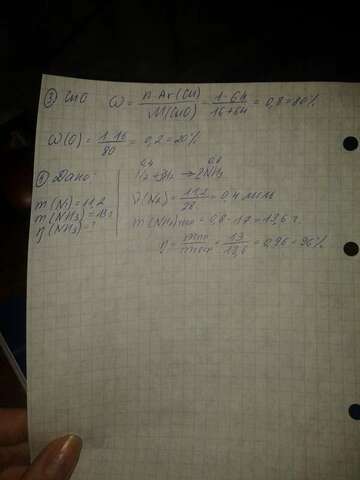 ③ CuO ω = n·Ar(Cu) / M(CuO) = 1·64 / 16+64 = 0,8 = 80%
ω(O) = 1·16 / 80 = 0,2 = 20%
Дано:
m(N₂) = 11,2
m(NH₃) = 13 г
η(NH₃) = ?
0,4 0,8
N₂ + 3H₂ → 2NH₃
ν(N₂) = 11,2 / 28 = 0,4 моль
m(NH₃) теор = 0,8 · 17 = 13,6 г
η = mпр / mтеор = 13 / 13,6 = 0,96 = 96%